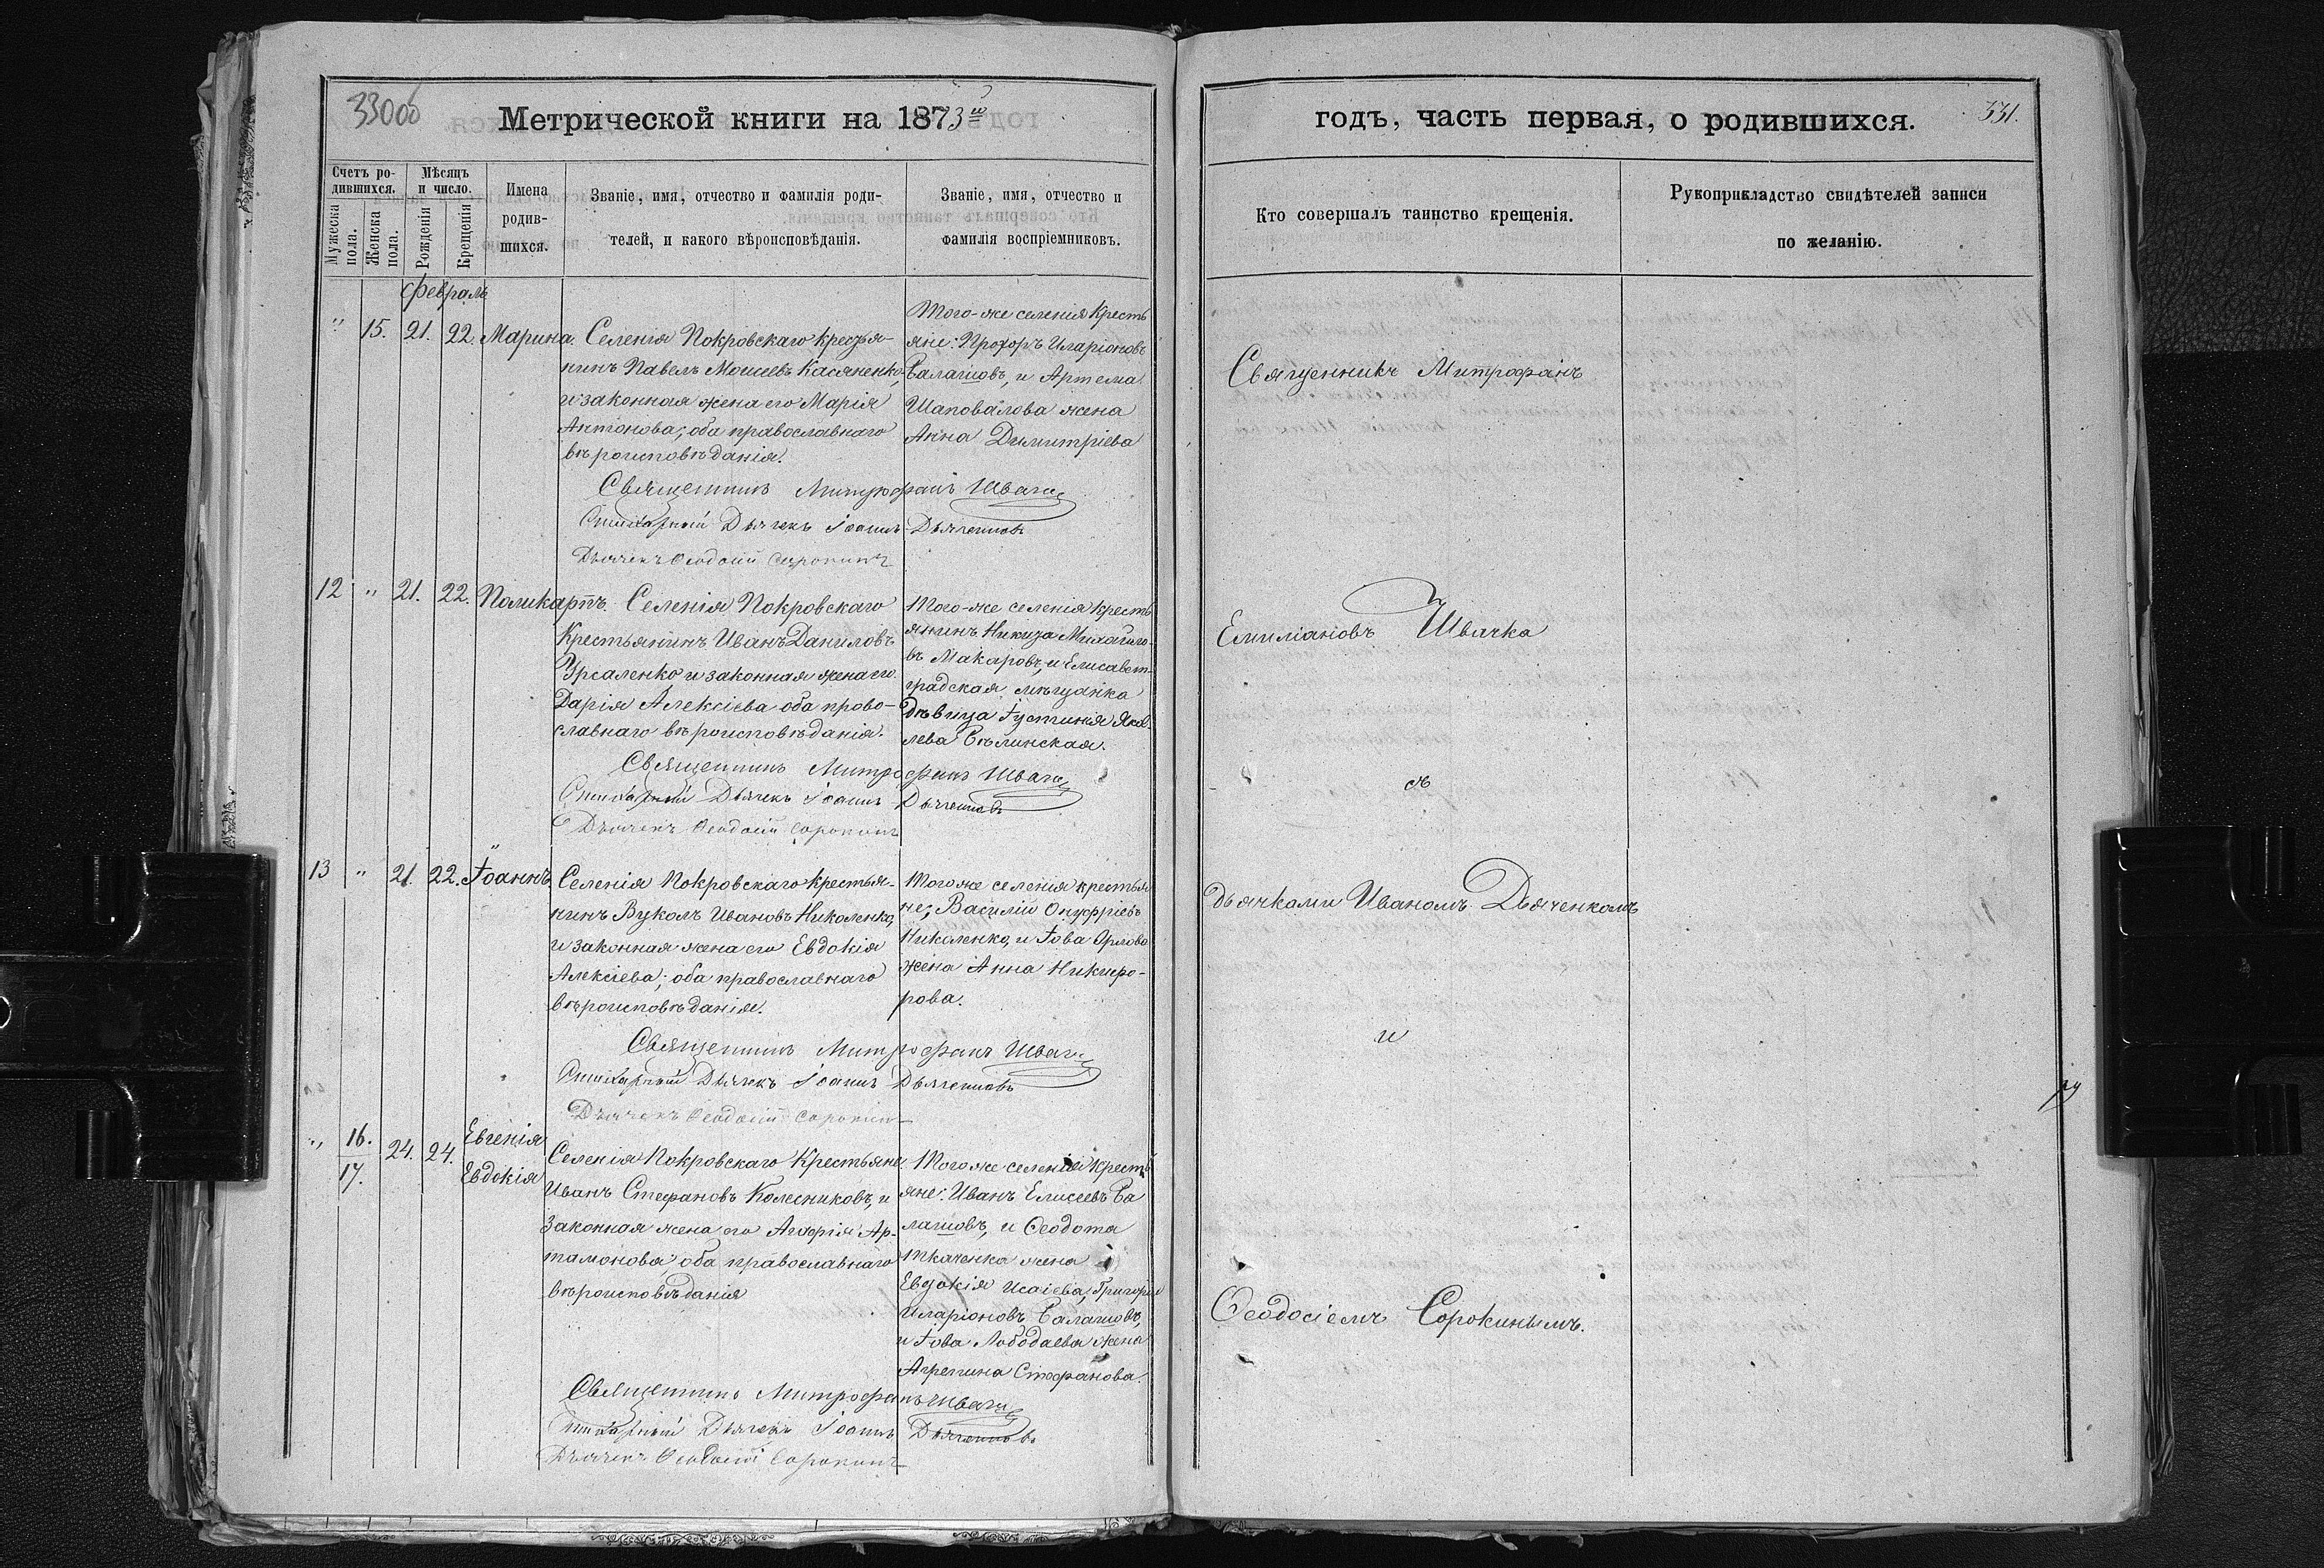 330об
Метрической книги на 1873й
Счетъ ро-
дившихся.
Мѣсяцъ
и число.
Мужеска
пола.
Женска
пола.
Рожденія
Крещенія
Имена
родив-
шихся.
Званіе, имя, отчество и фамилія роди-
телей, и какого вѣроисповѣданія.
Званіе, имя, отчество и
фамилія воспріемниковъ.
Февраль
" 15. 21. 22. Марина.
Селенія Покровскаго крестья-
нинъ Павелъ Моисеевъ Касяненко,
и законная жена его Марія
Антонова; оба православнаго
вѣроисповѣданія.
Того-же селенія кресть
яне: Прохоръ Иларіоновъ
Балашовъ, и Артема
Шаповалова жена
Анна Димитріева
Священникъ Митрофанъ Швачка
Стихарный Дьячекъ Іоаннъ Дьяченковъ
Дьячекъ Ѳеодосій Сорокинъ
12 " 21. 22. Поликарпъ.
Селенія Покровскаго
Крестьянинъ Иванъ Даниловъ
Урсаленко и законная жена его
Дарія Алексіева оба право-
славнаго вѣроисповѣданія.
Того-же селенія кресть
янинъ Никита Михайло-
въ Макаровъ, и Елисавет-
градская мѣщанка
дѣвица Іустинія Яков
лева Бѣлинская.
Священникъ Митрофанъ Швачка
Стихарный Дьячекъ Іоаннъ Дьяченковъ
Дьячекъ Ѳеодосій Сорокинъ
13 " 21. 22. Іоаннъ
Селенія Покровскаго крестья-
нинъ Вуколъ Ивановъ Николенко,
и законная жена его Евдокія
Алексіева; оба православнаго
вѣроисповѣданія.
Того же селенія крестья
не; Василій Онуфріевъ
Николенко, и Іова Орлова
жена Анна Никифо-
рова.
Священникъ Митрофанъ Швачка
Стихарный Дьячекъ Іоаннъ Дьяченковъ
Дьячекъ Ѳеодосій Сорокинъ
" 16. 24. 24. Евгенія
17. Евдокія
Селенія Покровскаго Крестьяне
Иванъ Стефановъ Колесниковъ, и
законная жена его Агафія Ар-
тамонова оба православнаго
вѣроисповѣданія
Того же селенія крестъ
яне: Иванъ Елисеевъ Ба
лашовъ, и Ѳеодота
Ткаченка жена
Евдокія Исаіева, Григорій
Иларіоновъ Балашовъ,
и Іова Лободаева жена
Агрепина Стефанова.
Священникъ Митрофанъ Швачка
Стихарный Дьячекъ Іоаннъ Дьяченковъ
Дьячекъ Ѳеодосій Сорокинъ
годъ, часть первая, о родившихся.
331.
Кто совершалъ таинство крещенія.
Рукоприкладство свидѣтелей записи
по желанію.
Священникъ Митрофанъ
Емиліановъ Швачка
съ
дьячками Иваномъ Дьяченкомъ
и
Ѳеодосіемъ Сорокинымъ.